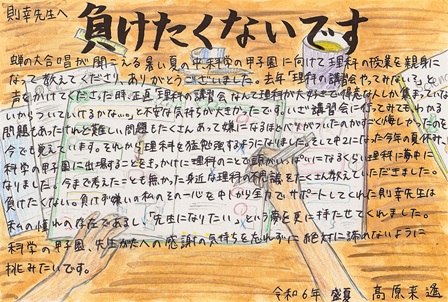 則幸先生へ
負けたくないです
蝉の大合唱が聞こえる暑い夏の中、科学の甲子園に向けて理科の授業を親身に
なって教えてくださり、ありがとうございました。去年「理科の講習会やってみない?」と
声をかけてくださった時、正直「理科の講習会なんて理科が大好きで得意な人しか集まっていな
いからついていけるかな…。」と不安な気持ちが大きかったです。いざ講習会に行ってみてもわかる
問題もあったけれど難しい問題もたくさんあって嫌になるほどバツがついたのがすごく悔しかったのを
今でも覚えています。それから理科を猛勉強するようになりました。そして中2になった今年の夏休み、
科学の甲子園に出場することをきっかけに理科のことで頭がいっぱいになるくらい理科に夢中に
なりました。今まで考えたことも無かった身近な理科の不思議をたくさん教えていただきました。
負けたくない。負けず嫌いの私のその一心を中1から全力でサポートしてくれた則幸先生は
私の憧れの存在であるし、「先生になりたい」という夢を更に持たせてくれました。
科学の甲子園、先生方への感謝の気持ちを忘れずに絶対に諦めないように
挑みたいです。
令和6年 盛夏 高原菜遥